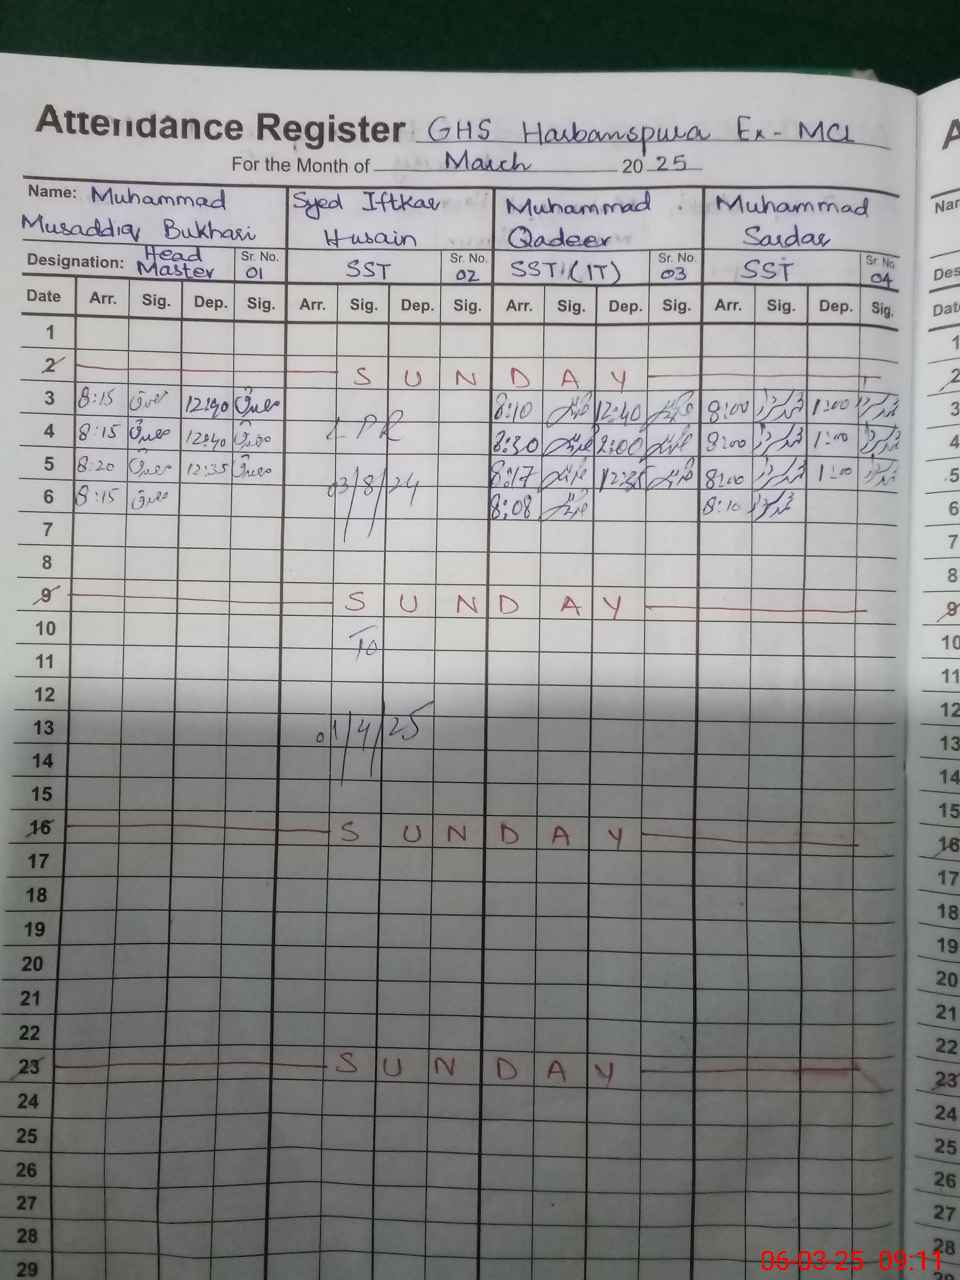 Attendance Register GHS Harbanspura Ex-MCL
For the Month of March 2025
Name: Muhammad Musaddiq Bukhari Syed Iftkar Husain Muhammad Qadeer Muhammad Sardar
Designation: Head Master Sr. No. 01 SST Sr. No. 02 SST (IT) Sr. No. 03 SST Sr. No. 04
Date Arr. Sig. Dep. Sig. Arr. Sig. Dep. Sig. Arr. Sig. Dep. Sig. Arr. Sig. Dep. Sig.
1
2 SUNDAY
3 8:15 12:40 8:10 12:40 8:00 1:00
4 8:15 12:40 LPR 8:30 8:00 1:00
5 8:20 12:35 8:17 12:35 8:00 1:00
6 8:15 03/8/24 8:08 8:10
7
8
9 SUNDAY
10 To
11
12
13 01/4/25
14
15
16 SUNDAY
17
18
19
20
21
22
23 SUNDAY
24
25
26
27
28
29
06-03-25 09:11